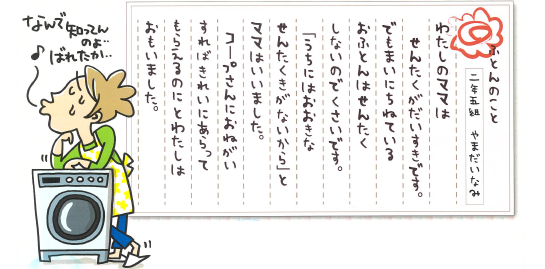 ふとんのこと
二年五組 やまだいなみ
わたしのママは
せんたくがだいすきです。
でもまいにちねている
おふとんはせんたく
しないのでくさいです。
「うちにはおおきな
せんたくきがないから」と
ママはいいました。
コープさんにおねがい
すればきれいにあらって
もらえるのにとわたしは
おもいました。
なんで知ってん
のよ…
ばれたか…
♪